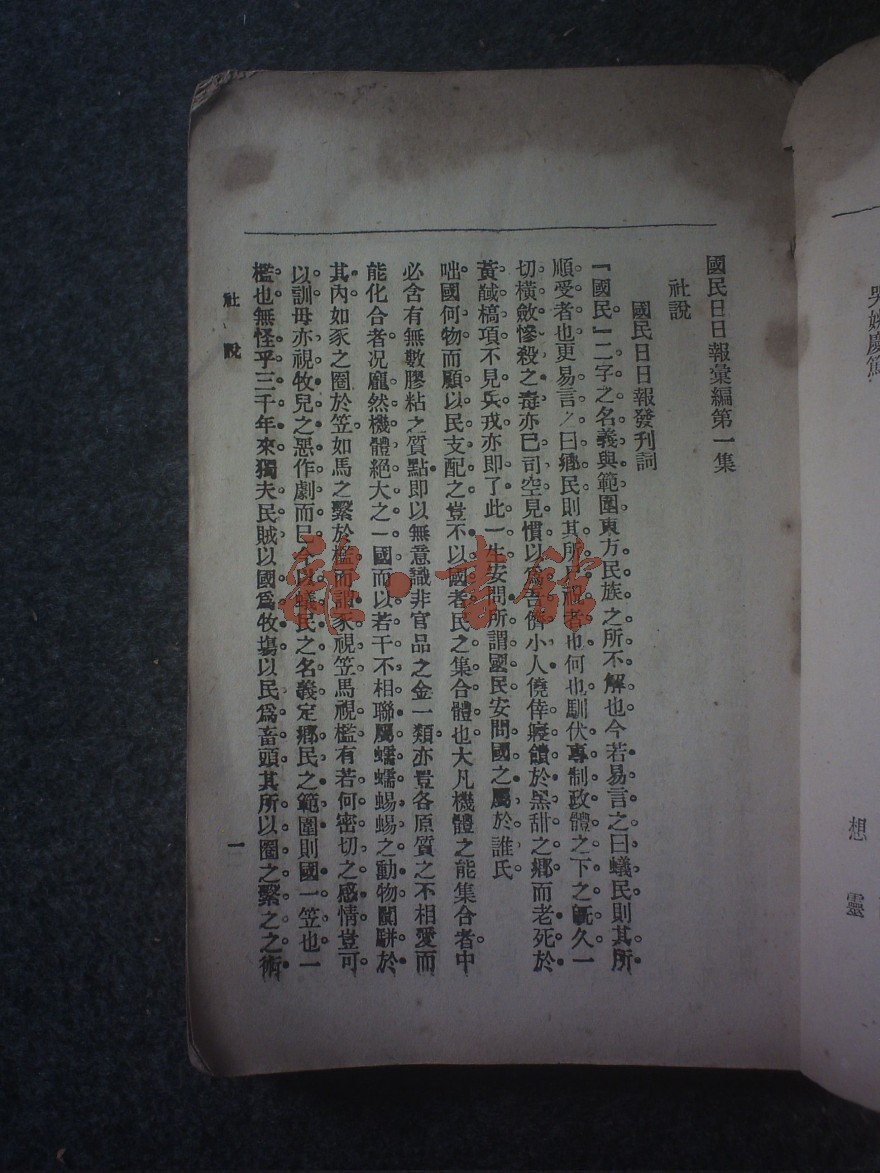 國民日日報彙編第一集
社說
國民日日報發刊詞
「國民」二字之名義與範圍東方民族之所不解也今若易言之曰蟻民則其所
順受者也更易言之曰鄉民則其所自視者也何也馴伏專制政體之下之旣久一
切橫斂慘殺之毒亦已司空見慣以爲吾儕小人僥倖寢饋於黑甜之鄉而老死於
黃馘槁項不見兵戎亦卽了此一生安問所謂國民安問國之屬於誰氏
咄國何物而顧以民支配之豈不以國者民之集合體也大凡機體之能集合者中
必含有無數膠粘之質點卽以無意識非官品之金一類亦豈各原質之不相愛而
能化合者况龐然機體絕大之一國而以若干不相聯屬蠕蠕蜴蜴之動物闐駢於
其內如豕之圈於笠如馬之繫於檻而謂豕視笠馬視檻有若何密切之感情豈可
以訓毋亦視牧兒之惡作劇而已今以蟻民之名義定鄉民之範圍則國一笠也一
檻也無怪乎三千年來獨夫民賊以國爲牧塲以民爲畜頭其所以圈之繫之之術
社說
一
想
靈
龍·書館